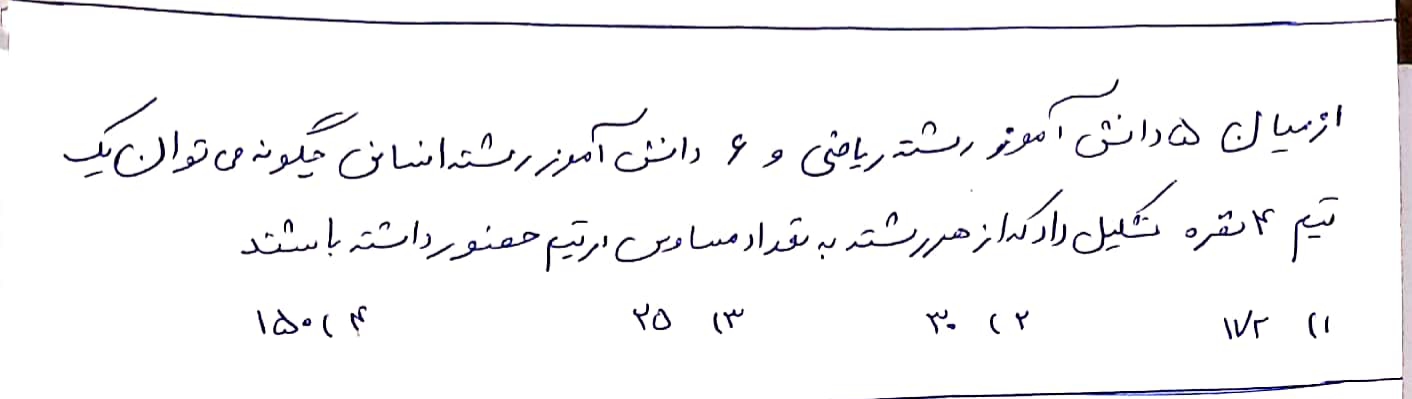 از میان ۵ دانش آموز رشته ریاضی و ۶ دانش آموز رشته انسانی چگونه می توان یک
تیم ۴ نفره تشکیل داد که از هر رشته به تعداد مساوی در تیم حضور داشته باشند
۱) ۱۷۲ ۲) ۳۰ ۳) ۲۵ ۴) ۱۵۰